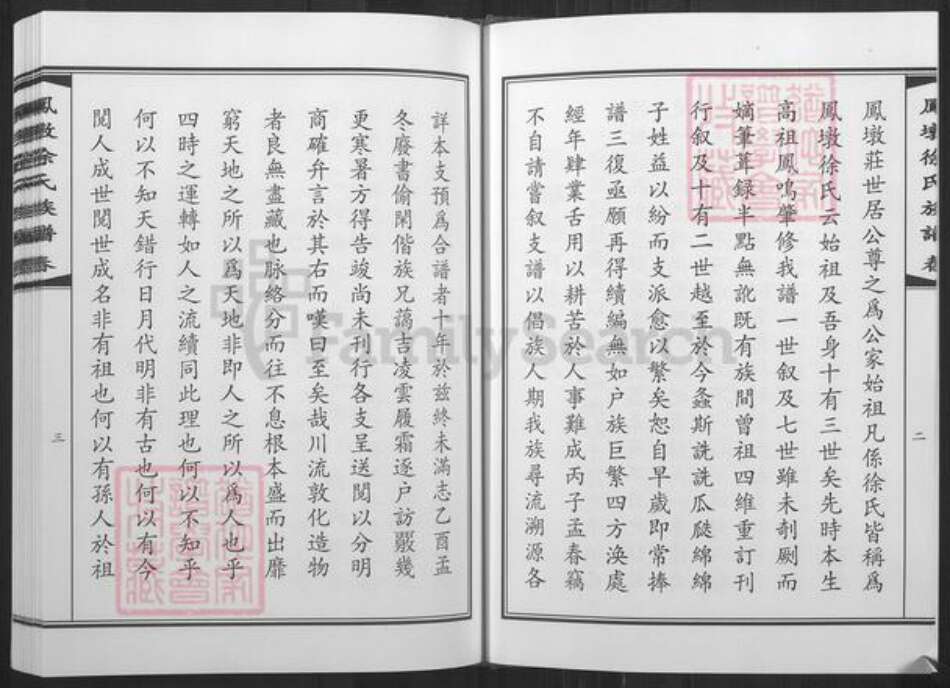 鳳墩徐氏族譜 卷
二
鳳墩莊世居公尊之爲公家始祖凡係徐氏皆稱爲
鳳墩徐氏云始祖及吾身十有三世矣先時本生
高祖鳳鳴肇修我譜一世叙及七世雖未剞劂而
嫡筆葺録半點無訛既有族間曾祖四維重訂刊
行叙及十有二世越至於今螽斯詵詵瓜瓞綿綿
子姓益以紛而支派愈以繁矣恕自早歲即常捧
譜三復亟願再得續編無如户族巨繁四方渙處
經年肆業舌用以耕苦於人事難成丙子孟春竊
不自請嘗叙支譜以倡族人期我族尋流溯源各
詳本支預爲合譜者十年於兹終未滿志乙酉孟
冬廢書偷閑偕族兄藹吉凌雲履霜逐户訪嚴幾
更寒暑方得告竣尚未刊行各支呈送閱以分明
商確弁言於其右而嘆曰至矣哉川流敦化造物
者良無盡藏也脉絡分而往不息根本盛而出靡
窮天地之所以爲天地非即人之所以爲人也乎
四時之運轉如人之流續同此理也何以不知乎
何以不知天錯行日月代明非有古也何以有今
閱人成世閱世成名非有祖也何以有孫人於祖
三
鳳墩徐氏族譜 卷
FamilySearch